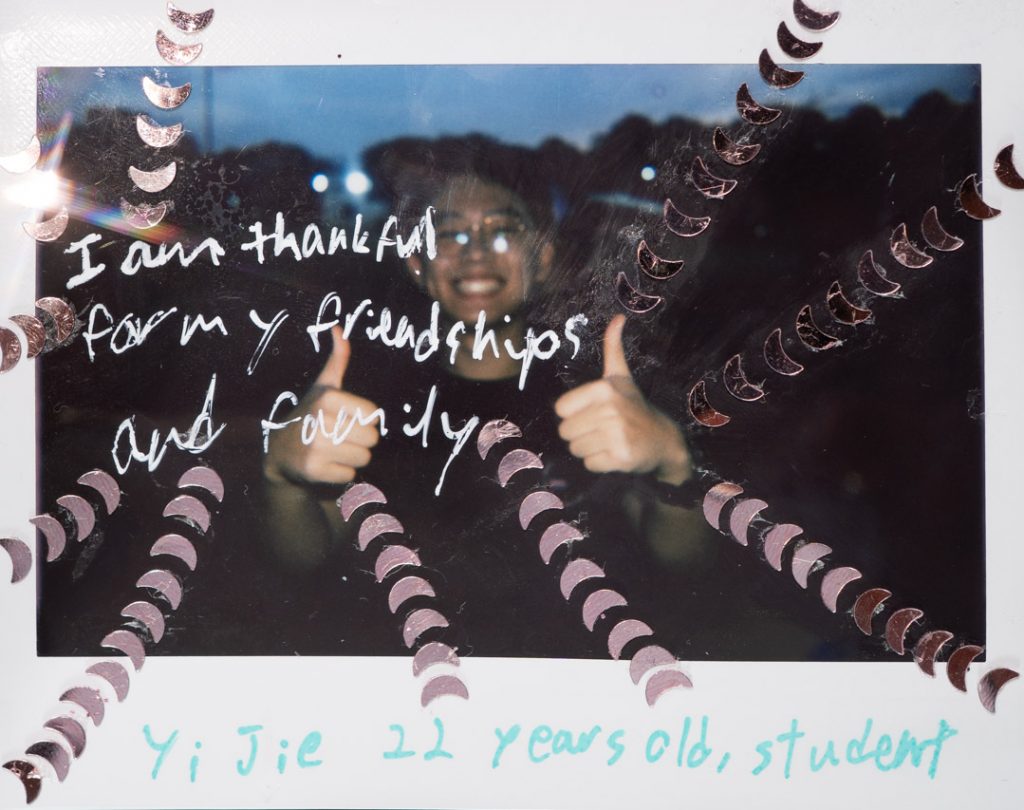 I am thankful
for my friendships
and family
Yi Jie 22 years old, student